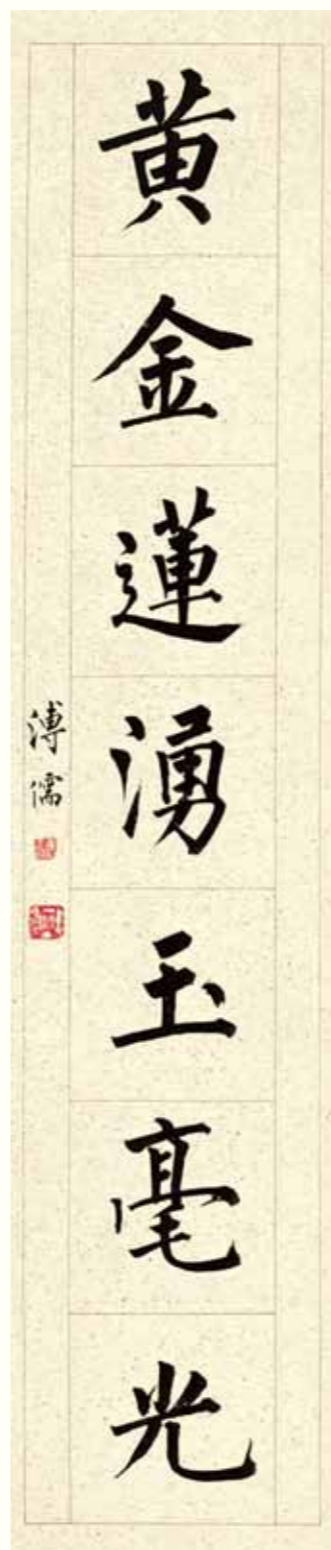 黄金蓮湧玉毫光
溥儒